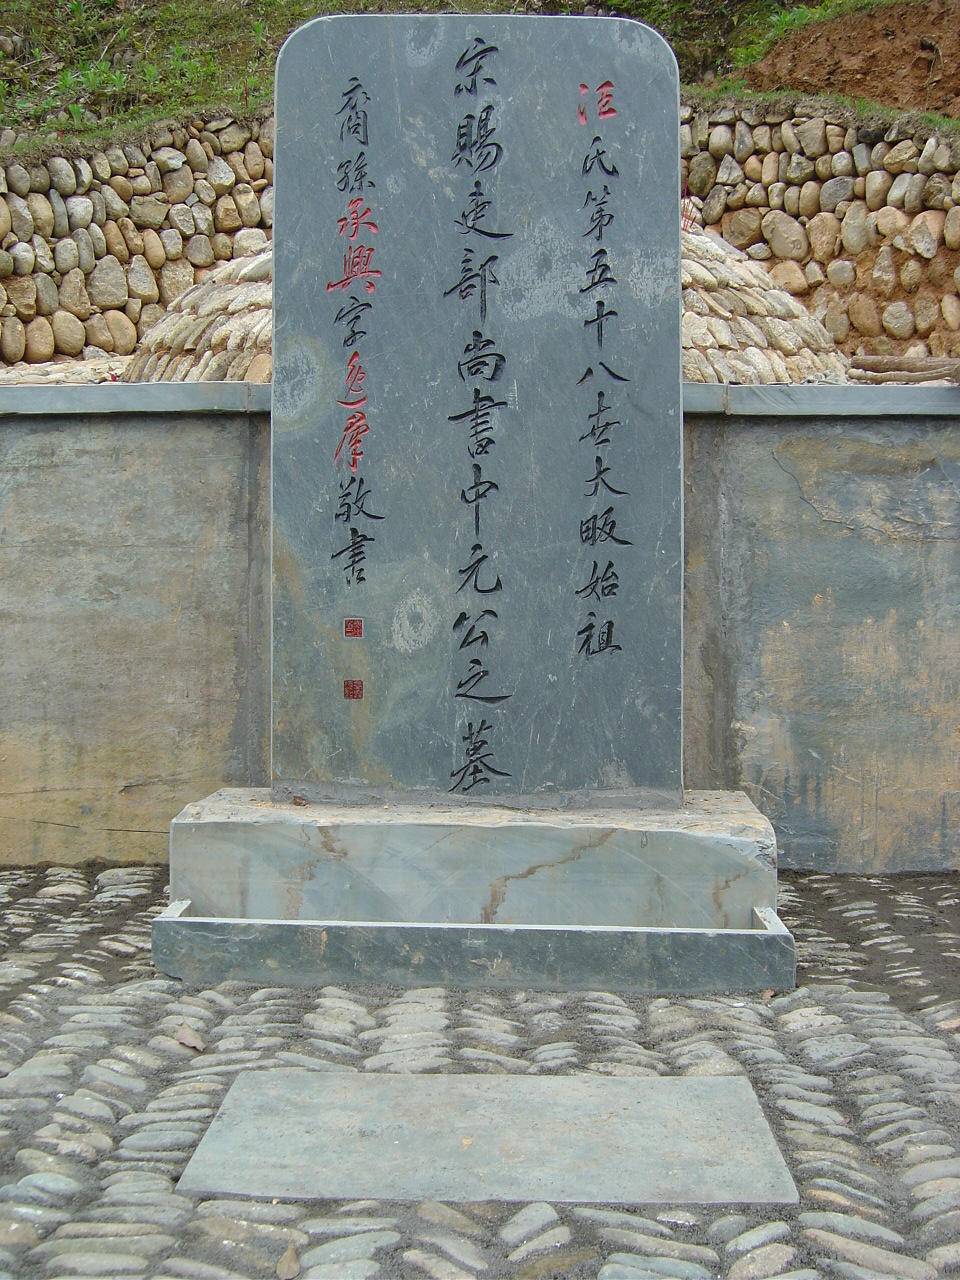 汪氏第五十八世大畈始祖
宋賜建部尚書中元公之墓
裔孫承興字逸群敬書